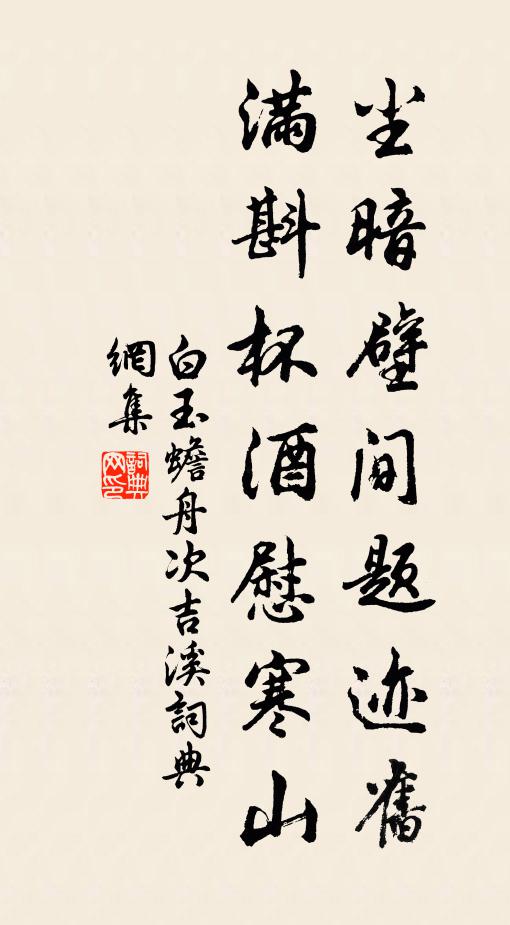 尘暗壁间题迹舊
满斟杯酒慰寒山
白玉蟾舟次吉溪詞典
網集
詞典网印